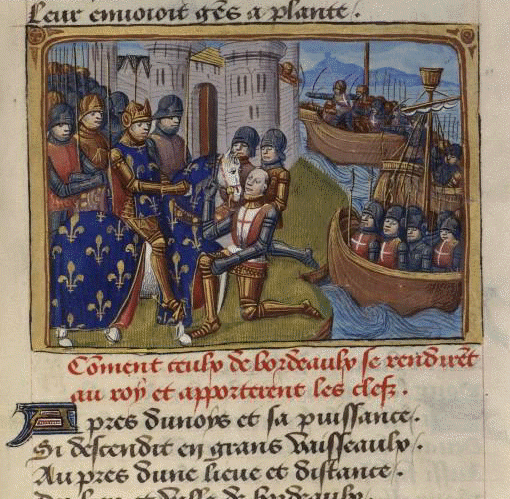 Leur enuoioit gẽs a plante.
Cõment ceulx de bordeaulx se rendirẽt
au roy et apporterent les clefz.
Apres dunoys et sa puissance.
Si descendit en grans vaisseaulx.
Au pres dune lieue et distance.